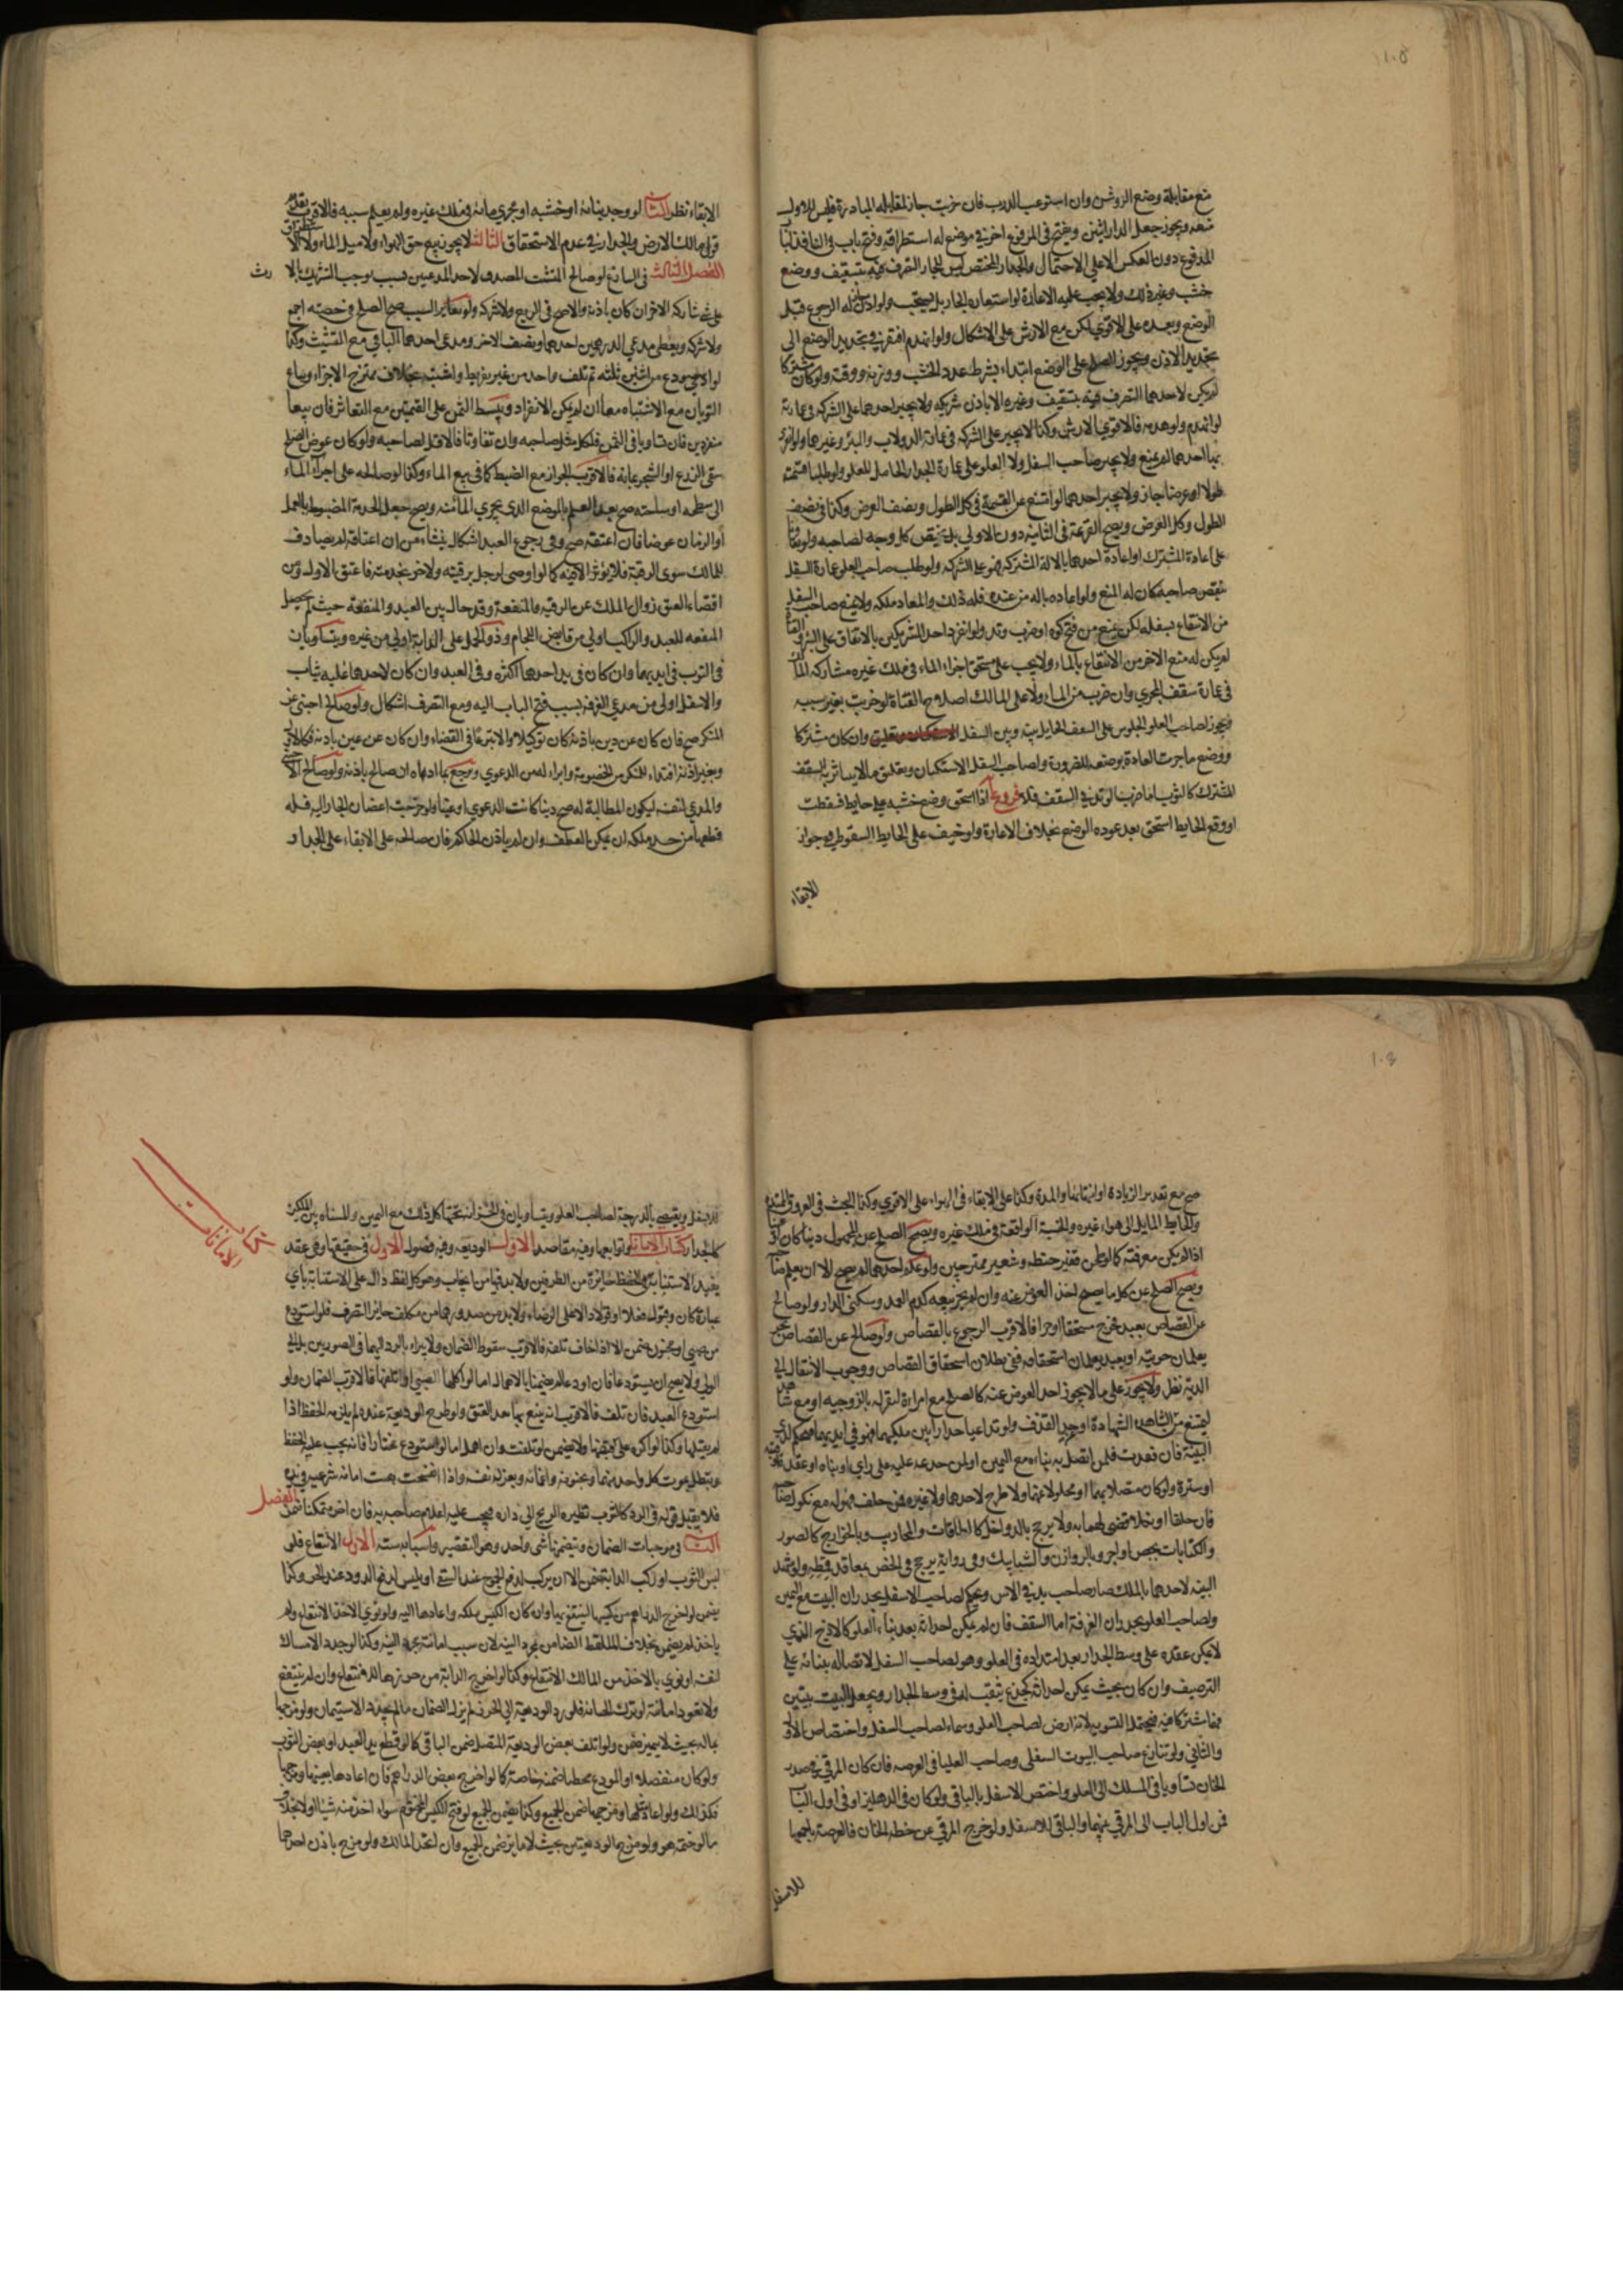 ١٠٥
منع مقابلة وضع الروشن وان استوعب الدرب فان خربت جاز لمقابله المبادرة فليس للاول
منعه ويجوز جعل الدار اثنين ويفتح في المرفوع اخر في موضع له استطراقه وفتح باب في النافذ
المرفوع دون العكس الا على الاحتمال والجدار المختص ليس للجار التصرف فيه بتسقيف ووضع
خشب وغير ذلك ولا يجب عليه الاعارة لو استعاره الجار بل يستحب ولو اذن جاز له الرجوع قبل
الوضع وبعده على الاقوى لكن مع الارش على الاشكال ولو انهدم افتقر في تجديد الوضع الى
تجديد الاذن ويجوز الصلح على الوضع ابتداء بشرط عدد الخشب ووزنه ووقته ولو كان مشتركا
لم يكن لاحدهما التصرف فيه بتسقيف وغيره الا باذن شريكه ولا يجبر احدهما على الشركة في عمارته
لو انهدم ولو هدمه فالاقوى الارش وكذا لا يجبر على الشركة في عمارة الدولاب والبئر وغيرهما ولو انفرد
بها احدهما لم يمنع ولا يجبر صاحب السفل ولا العلو على عمارة الجدار الحامل للعلو ولو طلبا قسمته
طولا او عرضا جاز ولا يجبر احدهما لو امتنع عن القسمة في كل الطول ونصف العرض وكذا في نصف
الطول وكل العرض ويصح القرعة في الثانية دون الاولى بل يختص كل وجه لصاحبه ولو اتفقا
على اعادة المشترك او اعادة احدهما بالالة المشتركة فهو على الشركة ولو طلب صاحب العلو عمارة السفل
فنقص صاحبه كان له المنع ولو اعاده باله من عنده فله ذلك والمعاد ملكه ولا يمنع صاحب السفل
من الانتفاع بسفله لكن يمنع من فتح كوه او ضرب وتد ولو انفرد احد الشريكين بالانفاق على البئر والقناة
لم يكن له منع الاخر من الانتفاع بالماء ولا يجب على مستحق اجراء الماء في ملك غيره مشاركة المالك
في عمارة سقف المجرى وان خرب من الماء ولا على المالك اصلاح القناة لو خربت بغير سببه
ويجوز لصاحب العلو الجلوس على السقف الحايل بينه وبين السفل وان كان مشتركا
ووضع ما جرت العادة بوضعه للضرورة ولصاحب السفل الاستكنان وتعليق ما لا يتاثر به السقف
المشترك كالثوب اما ضرب الوتد في السقف فلا فروع آ اذا استحق وضع خشبه على حايط فسقطت
او وقع الحايط استحق بعد عوده الوضع بخلاف الاعارة ولو خيف على الحايط السقوط في جواز
الابقاء
الابقاء نظر الثاني لو وجد بناءه او خشبه او مجرى مائه في ملك غيره ولم يعلم سببه فالاقرب تقديم
قول مالك الارض والجدار في عدم الاستحقاق الثالث لا يجوز بيع حق الهواء ولا مسيل الماء ولا الاستطراق
الفصل الثالث في التنازع لو صالح المتشبث المصدق لاحد المدعيين بسبب يوجب التشريك بالارث
على شئ شاركه الاخر ان كان باذنه والا صح في الربع ولا شركة ولو تغاير السبب صح الصلح في حصته اجمع
ولا شركة ويعطى مدعي الدرهمين احدهما ونصف الاخر ومدعي احدهما الباقي مع التشبث وكذا
لو استودع من اثنين ثلثه ثم تلف واحد من غير تفريط واشتبه بخلاف ممتزج الاجزاء ويباع
الثوبان مع الاشتباه معا ان لم يكن الانفراد ويبسط الثمن على القيمتين مع التعاسر فان بيعا
منفردين فان تساويا في الثمن فلكل مثل صاحبه وان تفاوتا فالاقل لصاحبه ولو كان عوض الصلح
سقي الزرع او الشجر بمائه فالاقرب الجواز مع الضبط كما في بيع الماء وكذا لو صالحه على اجراء الماء
الى سطحه او ساحته صح بعد العلم بالموضع الذي يجري الماء منه ويصح جعل الخدمة المضبوطة بالعمل
او الزمان عوضا فان اعتقه صح وفي رجوع العبد اشكال ينشاء من ان اعتاقه لم يصادف
للمالك سوى الرقبة فلا يؤثر الا فيه كما لو اوصى لرجل برقبته ولاخر بخدمته فاعتق الاول ومن
اقتضاء العتق زوال الملك عن الرقبة والمنفعة وقد حال بين العبد والمنفعة حيث لم يحصل
المنفعه للعبد والراكب اولى من قابض اللجام وذو الحمل على الدابة اولى من غيره ويتساويان
في الثوب في ايديهما وان كان في يد احدهما اكثره وفي العبد وان كان لاحدهما عليه ثياب
والاسفل اولى من مدعي الغرفة بسبب فتح الباب اليه ومع التصرف اشكال ولو صالح اجنبي عن
المنكر صح فان كان عن دين باذنه كان توكيلا والا تبرعا في القضاء وان كان عن عين باذنه فكالاول
وبغير اذنه افتداء للمنكر من الخصومة وابراء له من الدعوى ويرجع بما اداه ان صالح باذنه ولو صالح الاجنبي
والمدعي لنفسه ليكون المطالبة له صح دينا كانت الدعوى او عينا ولو خرجت اغصان الجار اليه فله
قطعها من حد ملكه ان لم يمكن العطف وان لم ياذن الحاكم فان صالحه على الابقاء على الجدار
١٠٤
صح مع تقدير الزيادة او انتهائها والمدة وكذا على الابقاء في الهواء على الاقوى وكذا البحث في العروق الممتدة
والحايط المايل الى هواء غيره والخشبة الواقعة في ملك غيره ويصح الصلح عن المجهول دينا كان او عينا
اذا لم يكن معرفته كالوطن قفيز حنطه وشعير ممتزجين ولو علم احدهما لم يصح الا ان يعلم صاحبه
ويصح الصلح عن كل ما يصح اخذ العوض عنه وان لم يجز بيعه كدم العمد وسكنى الدار ولو صالح
عن القصاص بعبد فخرج مستحقا او حرا فالاقرب الرجوع بالقصاص ولو صالح عن القصاص بحر
يعلمان حريته او بعبد يعلمان استحقاقه ففي بطلان استحقاق القصاص ووجوب الانتقال الى
الدية نظر ولا يجوز على ما لا يجوز اخذ العوض عنه كالصلح مع امراة لتقر له بالزوجيه او مع شاهد
ليمتنع من الشاهد الشهادة او حد القذف ولو تداعيا جدارا بين ملكيهما فهو في ايديهما
البينة فان فقدت فلمن اتصل به بناءه مع اليمين او لمن جذعه عليه على راي او بناه او عقد قبة
او سترة ولو كان متصلا بهما او محلولا عنهما ولا طرح لاحدهما ولا غيره فمن حلف فهو له مع نكول صاحبه
فان حلفا او نكلا قضي لهما به ولا يرجح بالدواخل كالطاقات والمحاريب وبالخوارج كالصور
والكتابات بجص او اجر وبالروازن والشبابيك وفي رواية يرجح في الخص بمعاقد قمطه ولو شهد
البينه لاحدهما بالملك صار صاحب يد في الاس ويحكم لصاحب الاسفل بجدران البيت مع اليمين
ولصاحب العلو بجدران الغرفة اما السقف فان لم يمكن احداثه بعد بناء العلو كالازج الذي
لا يمكن عقده على وسط الجدار بعد امتداده في العلو وهو لصاحب السفل لاتصاله ببنائه على
الترصيف وان كان بحيث يمكن احداثه كجذع يثقب له في وسط الجدار ويجعل البيت بيتين
فهما شركا فيه فيحتمل التسوية لانه ارض لصاحب العلو وسماء لصاحب السفل واختصاص الاول
والثاني ولو تنازع صاحب البيوت السفلى وصاحب العليا في العرصه فان كان المرقي في صدر
الخان تساويا في المسلك الى العلو واختص الاسفل بالباقي ولو كان في الدهليز او في اول الباب
فمن اول الباب الى المرقي بينهما والباقي للاسفل ولو خرج المرقي عن خطه الخان فالعرصة باجمعها
للاسفل
للاسفل ويقضى بالدرجة لصاحب العلو ويتساويان في الخزانة تحتها كل ذلك مع اليمين والمسناه بين الملكين
كالجدار كتاب الامانات وتوابعها وفيه مقاصد الاول الوديعه وفيه فصول الاول في حقيقتها وهي عقد
يفيد الاستنابة في الحفظ جائزة من الطرفين ولا بد فيها من ايجاب وهو كل لفظ دال على الاستنابة باي
عبارة كان وقبول فعلا او قولا دال على الرضاء ولا بد من صدورهما من مكلف جائز التصرف فلو استودع
من صبي او مجنون ضمن الا اذا خاف تلفه فالاقرب سقوط الضمان ولا يبراء بالرد اليهما في الصورتين بل الى
الولي ولا يصح ان يستودعا فان اودعا لم يضمنا بالاهمال اما لو اكلها الصبي او اتلفها فالاقرب الضمان ولو
استودع العبد فان تلف فالاقرب انه يتبع بها بعد العتق ولو طرح الوديعة عنده لم يلزمه الحفظ اذا
لم يقبلها وكذا لو اكره على قبضها ولا يضمن لو تلفت وان اهمل اما لو استودع مختارا فانه يجب عليه الحفظ
وتبطل بموت كل واحد منهما وبجنونه واغمائه وبعزله نفسه واذا انفسخت بقيت امانة شرعيه في يده
فلا يقبل قوله في الرد كالثوب تطيره الريح الى داره ويجب عليه اعلام صاحبه به فان اخر متمكنا ضمن الفصل
الثاني في موجبات الضمان وينضمها شي واحد وهو التقصير واسبابه ستة الاول الانتفاع فلو
لبس الثوب او ركب الدابة ضمن الا ان يركب لدفع الجموح عند السقي او يلبس لدفع الدود عند الحر وكذا
يضمن لو اخرج الدراهم من كيسها لينتفع بها وان كان الكيس ملكه واعادها اليه ولو نوى الاخذ للانتفاع ولم
ياخذ لم يضمن بخلاف الملتقط الضامن بمجرد النية لان سبب امانته مجرد النية وكذا لو جدد الامساك
لنفسه او نوى بالاخذ من المالك الانتفاع وكذا لو اخرج الدابة من حرزها للانتفاع وان لم ينتفع
ولا تعود امانته لو ترك الخيانة فلو رد الوديعة الى الحرز لم يزل الضمان ما لم يجدد الاستيمان ولو مزجها
بماله بحيث لا يتميز ضمن ولو اتلف بعض الوديعة المتصل ضمن الباقي كما لو قطع يد العبد او بعض الثوب
ولو كان منفصلا او المودع مخطئا ضمنه خاصة كما لو اخرج بعض الدراهم فان اعادها بعينها ومزجها
فكذلك ولو اعاد مثلها ومزجها ضمن الجميع وكذا يضمن الجميع لو فتح الكيس المختوم سواء اخذ منه شيئا او لا بخلاف
ما لو ختمه هو ولو مزج الوديعتين بحيث لا مايز ضمن الجميع وان اتحد المالك ولو مزج باذن احدهما
كتاب الامانات